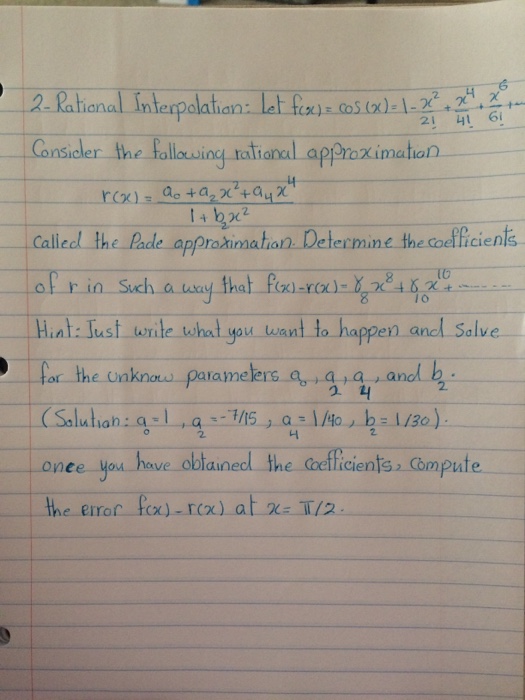 2- Rational Interpolation: Let f(x) = cos(x) = 1 - x²/2! + x⁴/4! + x⁶/6! + ...
Consider the following rational approximation
r(x) = (a₀ + a₂x² + a₄x⁴) / (1 + b₂x²)
Called the Pade approximation. Determine the coefficients
of r in such a way that f(x) - r(x) = γ₈x⁸ + γ₁₀x¹⁰ + ........
Hint: Just write what you want to happen and Solve
for the unknow parameters a₀, a₂, a₄, and b₂.
(Solution: a₀ = 1, a₂ = -7/15, a₄ = 1/40, b₂ = 1/30).
once you have obtained the coefficients, compute
the error f(x) - r(x) at x = π/2.